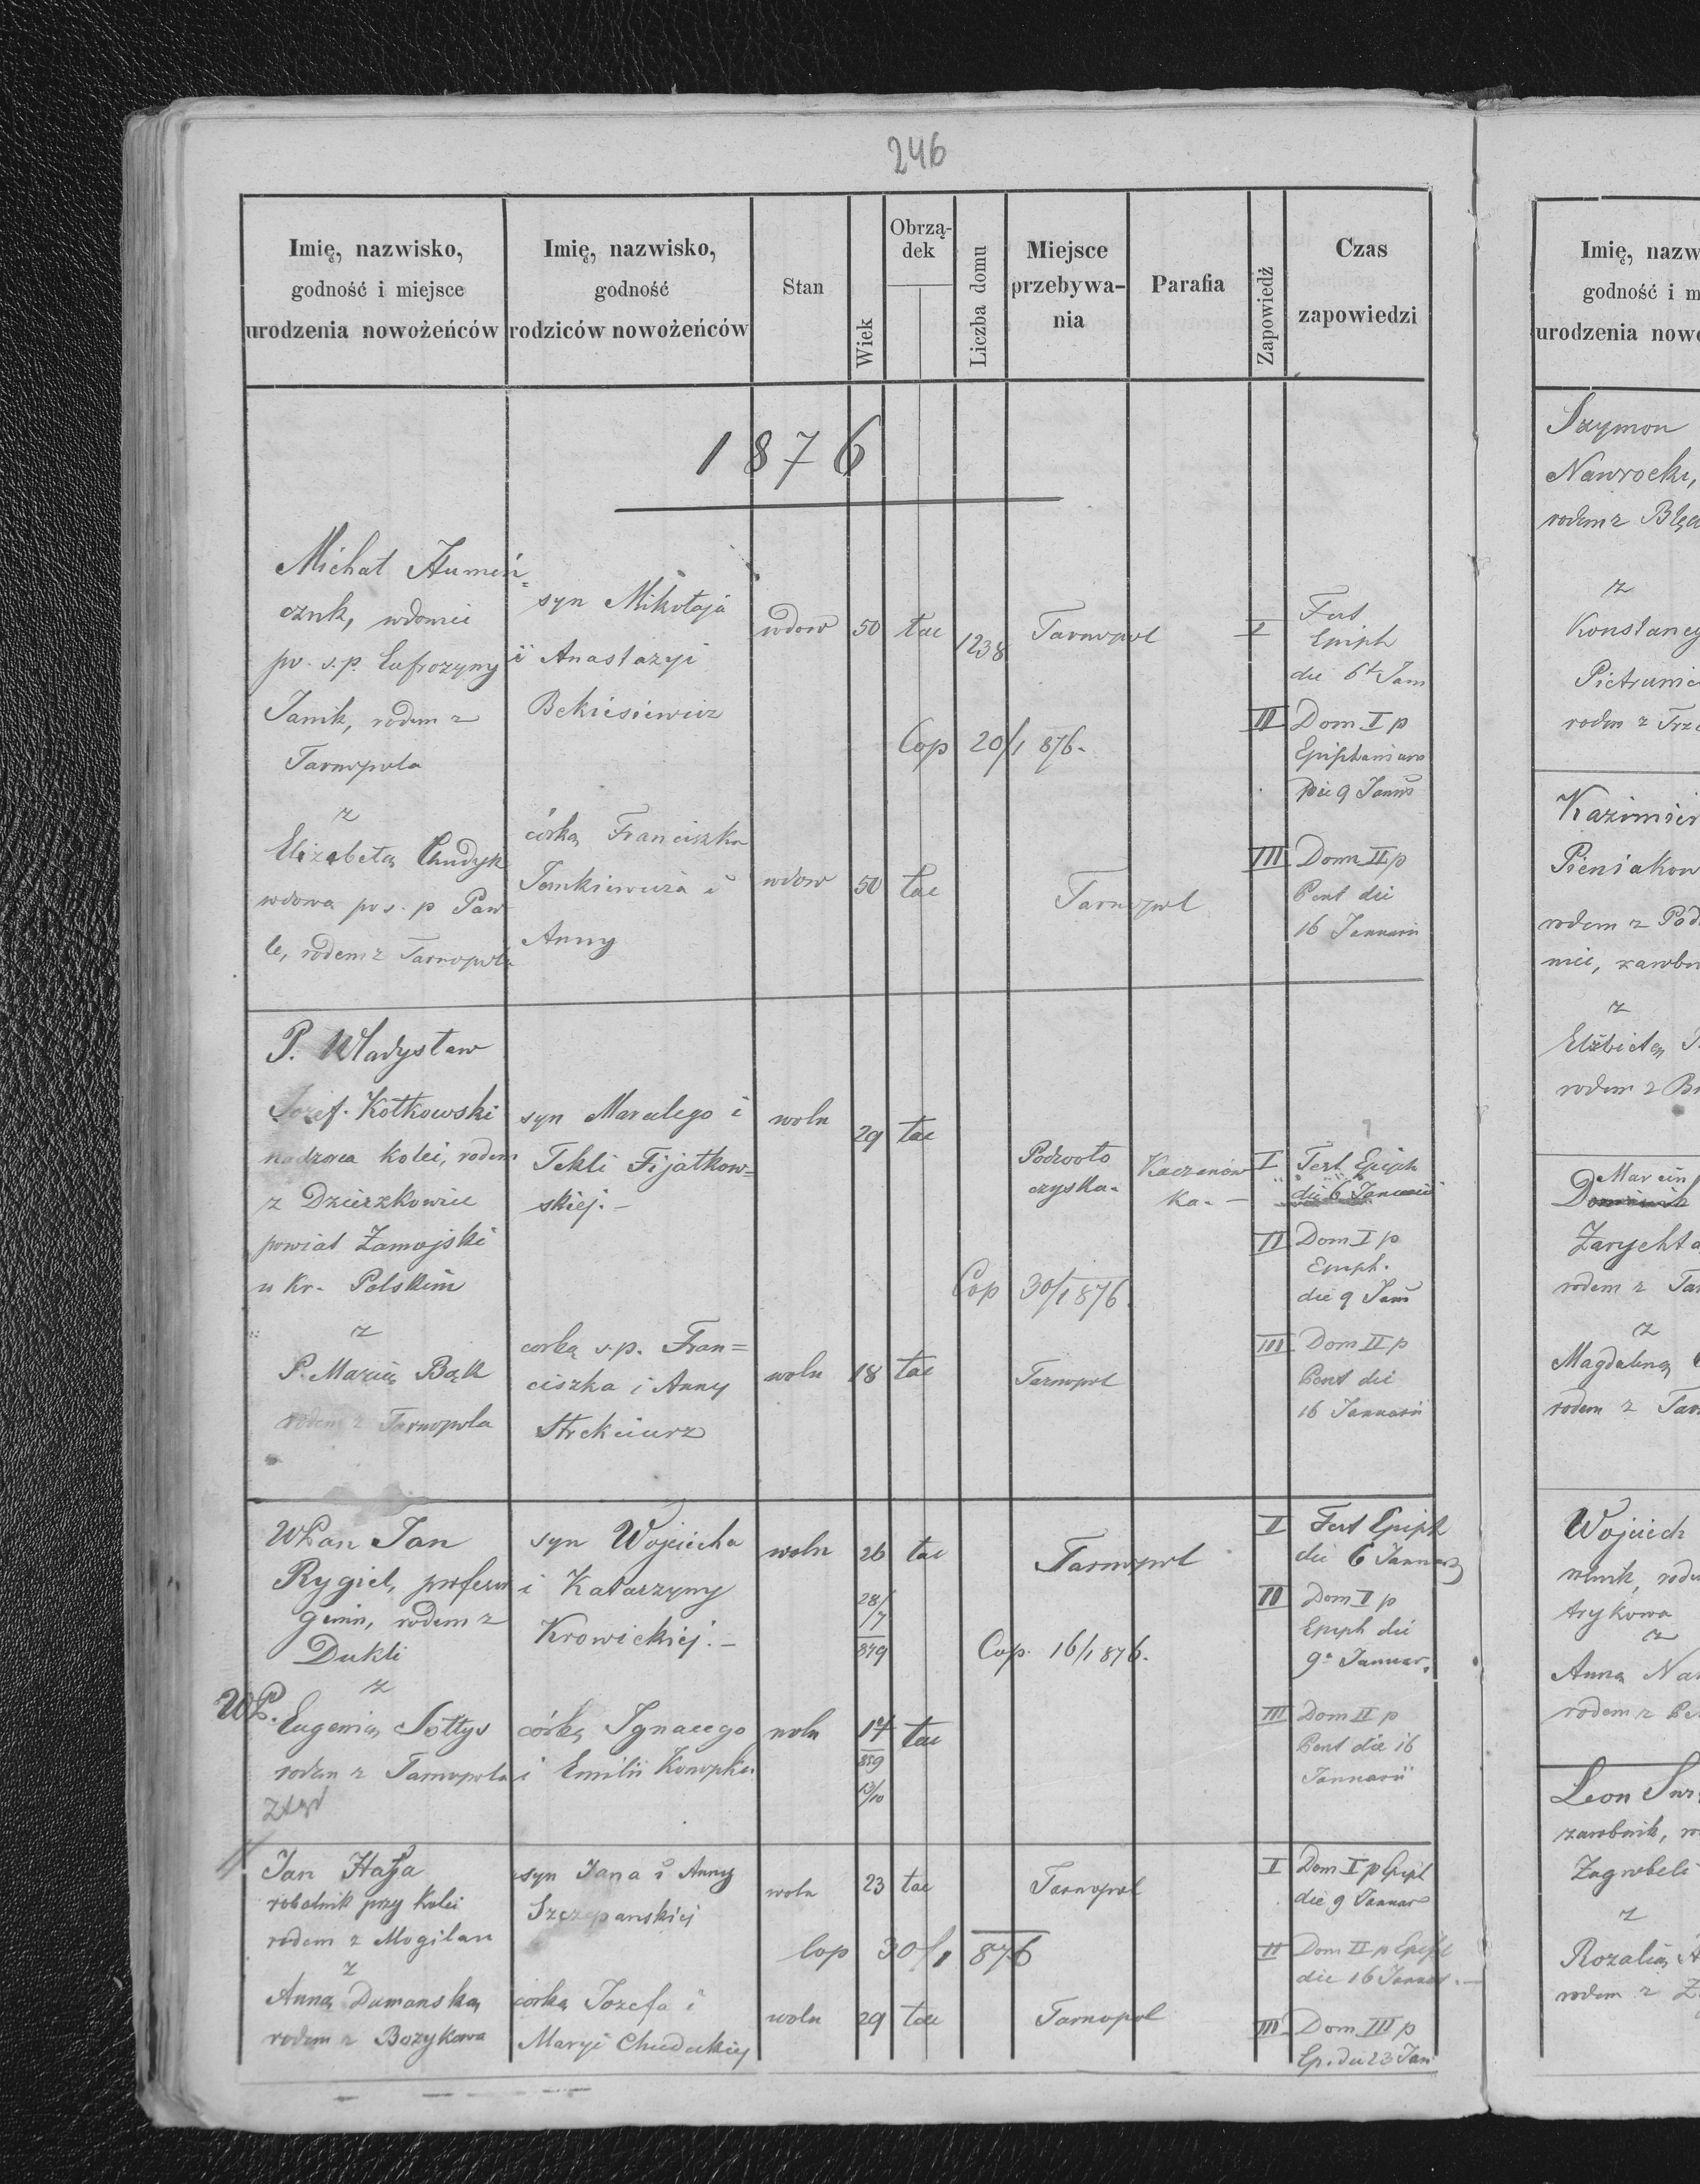 246
Imię, nazwisko,
godność i miejsce
urodzenia nowożeńców
Imię, nazwisko,
godność
rodziców nowożeńców
Stan
Wiek
Obrzą-
dek
Liczba domu
Miejsce
przebywa-
nia
Parafia
Zapowiedź
Czas
zapowiedzi
1876
Michał Humeń=
czuk, wdowiec
po s.p. Eufrozyny
Janik, rodem z
Tarnopola
z
Elizabetą Chudyk
wdowa po s. p Paw
le, rodem z Tarnopola
syn Mikołaja
i Anastazyi
Bekiesiewicz
córką Franciszka
Jankiewicza i
Anny
wdow 50 łac 1238 Tarnopol
Cop 20/1 876.
wdow 50 łac Tarnopol
I Fest
Epiph
die 6t Jan
II Dom I p
Epiphaniam
die 9 Januar
III Dom II p
Pent die
16 Januarii
P. Władysław
Józef Kotkowski
nadzorca kolei, rodem
z Dzierzkowic
powiat Zamojski
w Kr. Polskim
z
P. Marią Bąk
rodem z Tarnopola
syn Marcelego i
Tekli Fijałkow=
skiej.-
corką s.p. Fran=
ciszka i Anny
woln 29 łac
Podwoło
czyska.
Kaczanów
ka.-
Cop 30/1 876.
woln 18 łac Tarnopol
I Fest Epiph
die 6 Januarii
II Dom I p
Epiph.
die 9 Jan
III Dom II p
Pent die
16 Januarii
WPan Jan
Rygiel, profesor
gimn, rodem z
Dukli
z
WP.
Eugenią Sołtys
rodem z Tarnopola
syn Wojciecha
i Katarzyny
Krowickiej.-
córką Ignacego
i Emilii Konopka
woln 26 łac Tarnopol
28/
7
849
Cop. 16/1 876.
woln 17 łac
859
13/10
I Fest Epiph
die 6 Januar
II Dom I p
Epiph die
9a Januar.
III Dom II p
Pent die 16
Januarii
Jan Hałja
robotnik przy kolei
rodem z Mogilan
z
Anną Dumanską
rodem z Bożykowa
syn Jana i Anny
Szczepanskiej
corką Jozefa i
Maryi Chudeckiej
woln 23 łac Tarnopol
Cop 30/1 876
woln 29 łac Tarnopol
I Dom I p Epiph
die 9 Januar
II Dom II p Epiph
die 16 Januar.-
III Dom III p
Ep. die 23 Jan
Imię, nazw
godność i m
urodzenia nowo
Szymon
Nawrocki,
rodem z Błęd
z
Konstancy
Pietrunie
rodem z Trze
Kazimier
Pieniakow
rodem z Pod
nice, zarobn
z
Elżbietą
rodem z
Marcin
Zarychta
rodem z Tar
z
Magdaleną
rodem z Tar
Wojciech
rolnik, rode
z
Anna Na
rodem z
Leon
zarobnik,
Zagrobeli
z
Rozalią
rodem z